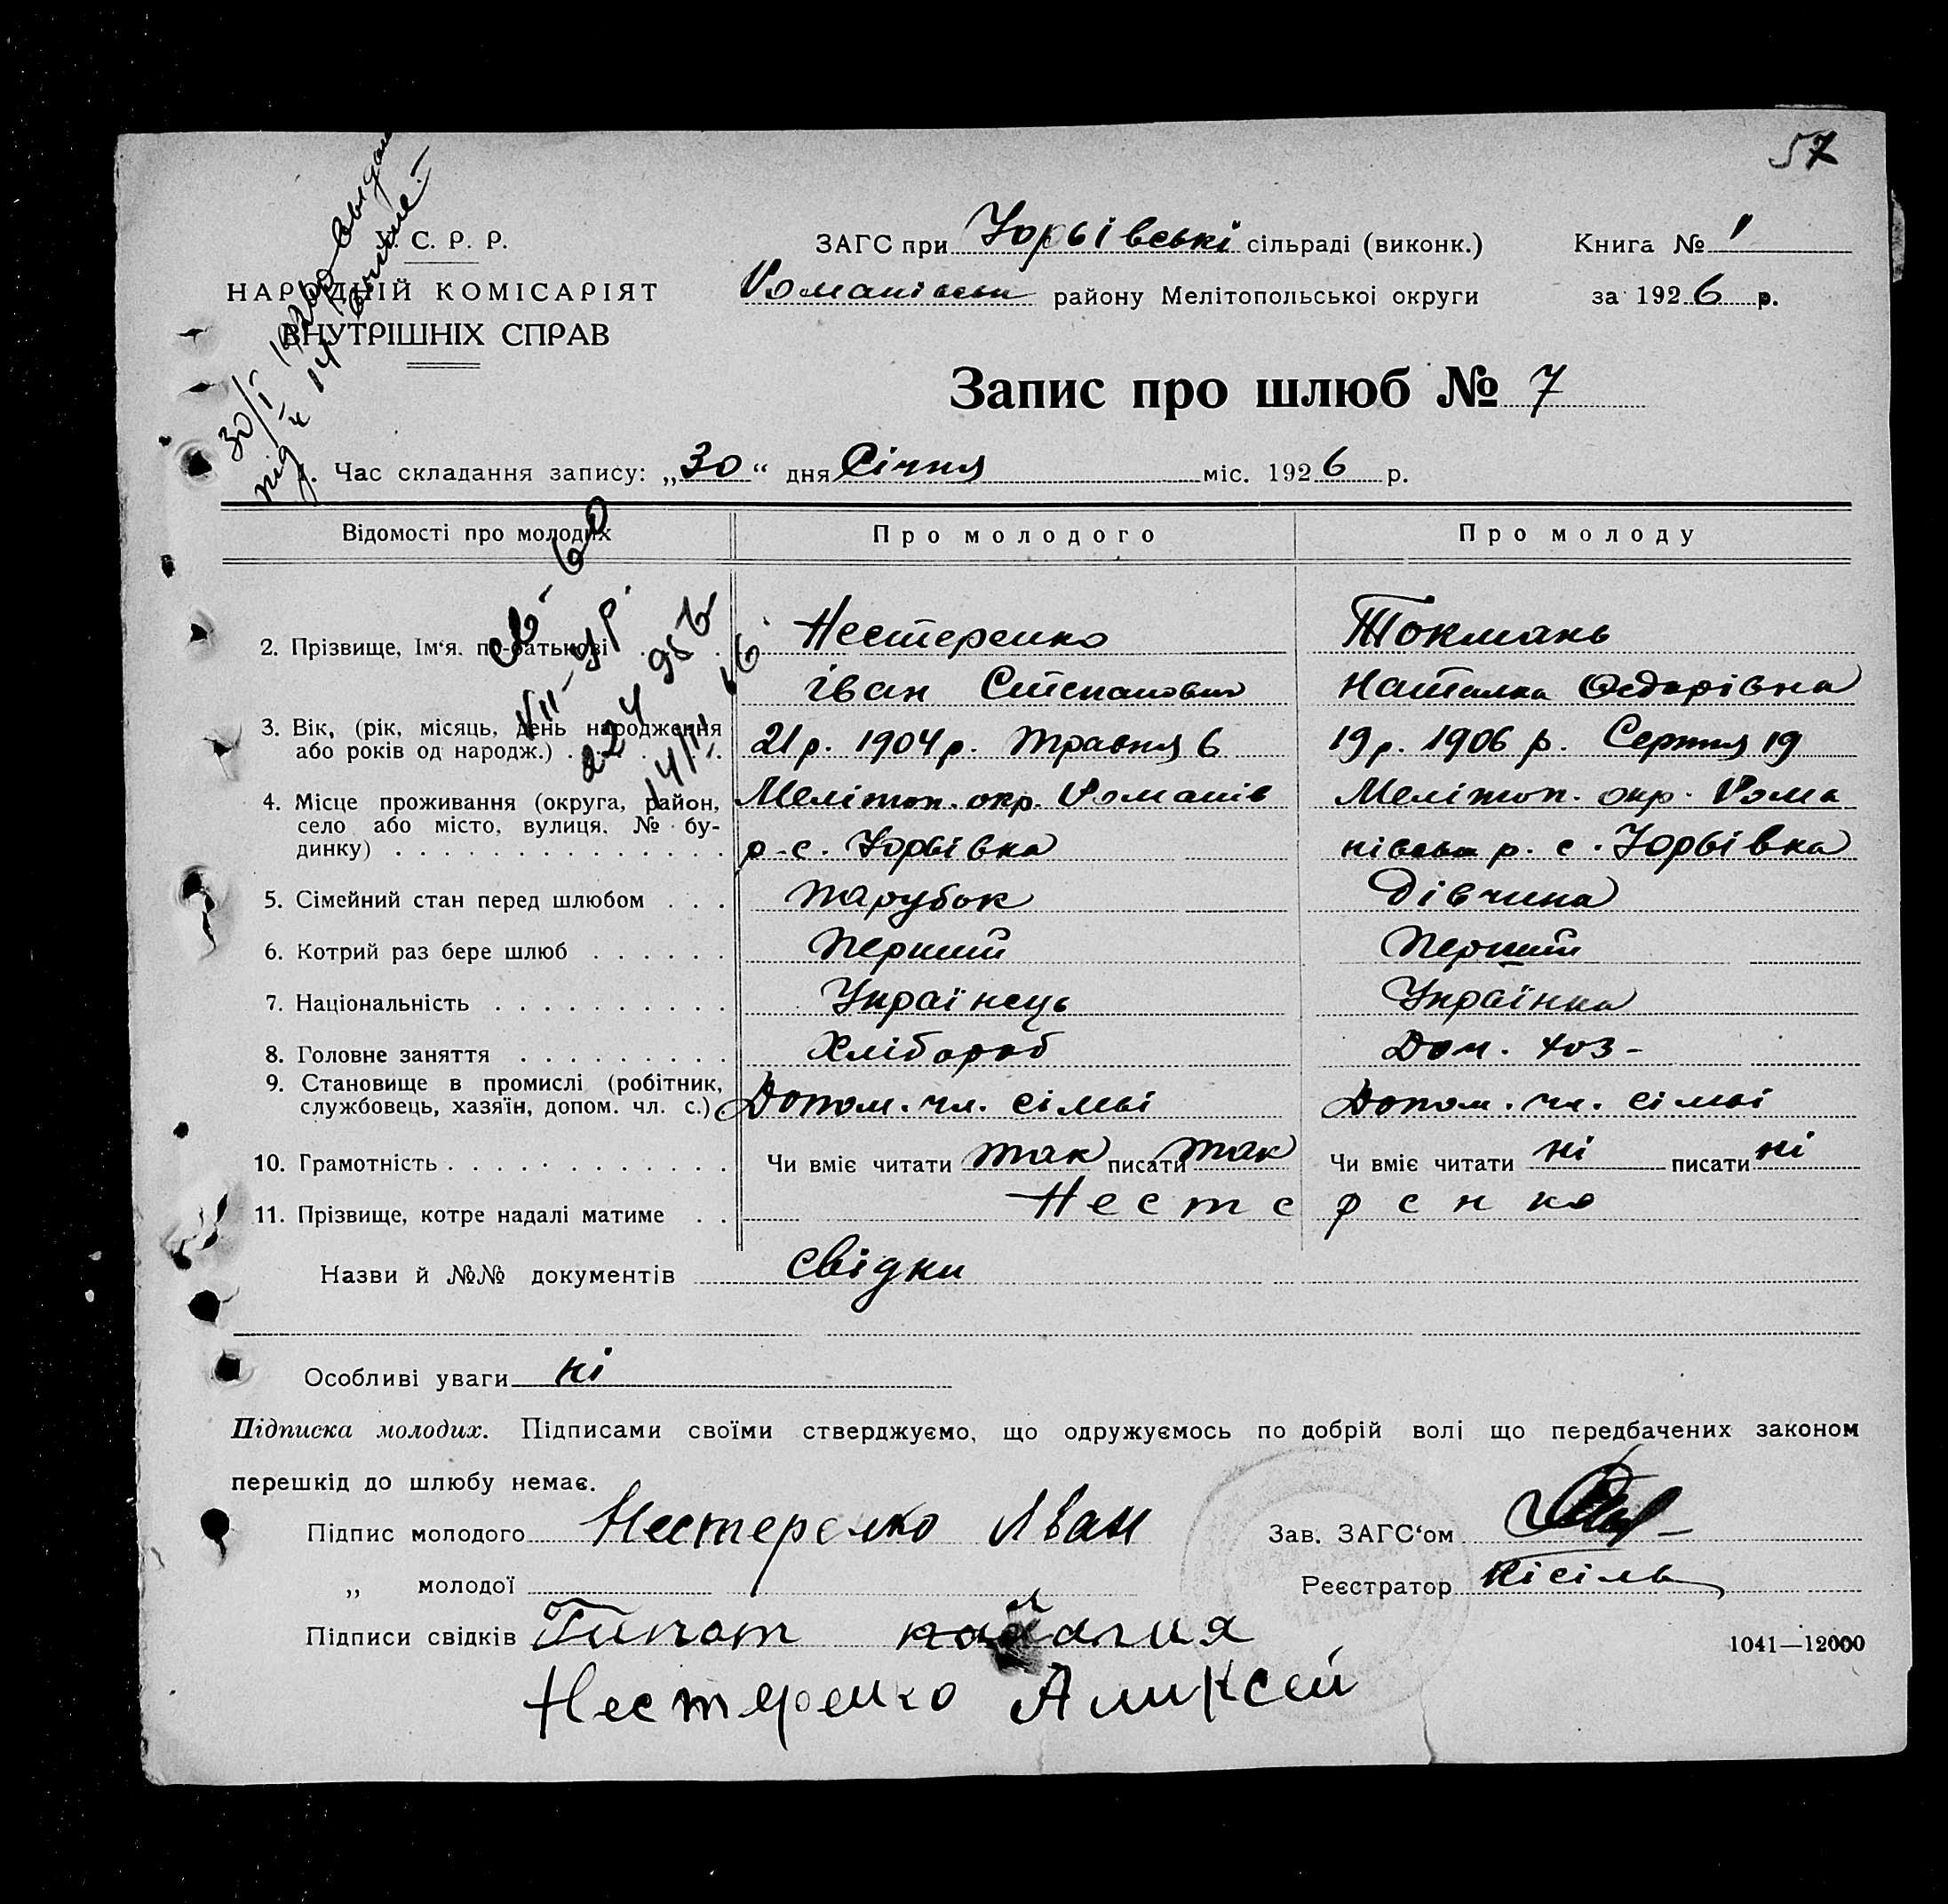 57
У. С. Р. Р.
НАРОДНІЙ КОМІСАРІЯТ
ВНУТРІШНІХ СПРАВ
ЗАГС при Юрьівські сільраді (виконк.) Книга № 1
Романівськ району Мелітопольської округи за 1926 р.
Запис про шлюб № 7
Час складання запису: „30“ дня Січня міс. 1926 р.
Відомості про молодих Про молодого Про молоду
2. Прізвище, Ім‘я. по-батькові . . Нестеренко Токмань
Іван Степанович Наталка Федорівна
3. Вік, (рік, місяць, день народження
або років од народж.) . . . . . 21 р. 1904 р. Травня 6 19 р. 1906 р. Серпня 19
4. Місце проживання (округа, район, Мелітоп. окр. Романів Мелітоп. окр. Рома
село або місто, вулиця, № бу-
динку) . . . . . . . . . . . . . . р. с. Юрьівка нівськ р. с. Юрьівка
5. Сімейний стан перед шлюбом . . . Парубок Дівчина
6. Котрий раз бере шлюб . . . . . . Перший Перший
7. Національність . . . . . . . . . . Українець Українка
8. Головне заняття . . . . . . . . . Хлібороб Дом. хоз-
9. Становище в промислі (робітник,
службовець, хазяїн, допом. чл. с.) Допом. чл. сімьі Допом. чл. сімьі
10. Грамотність . . . . . . . . . . . . Чи вміє читати так писати так Чи вміє читати ні писати ні
11. Прізвище, котре надалі матиме . . Нестеренко
Назви й №№ документів свідки
Особливі уваги ні
Підписка молодих. Підписами своїми стверджуємо, що одружуємось по добрій волі що передбачених законом
перешкід до шлюбу немає.
Підпис молодого Нестеренко Иван Зав. ЗАГС‘ом
„ молодої Реєстратор Кісіль
Підписи свідків
1041—12000
Нестеренко Аликсей